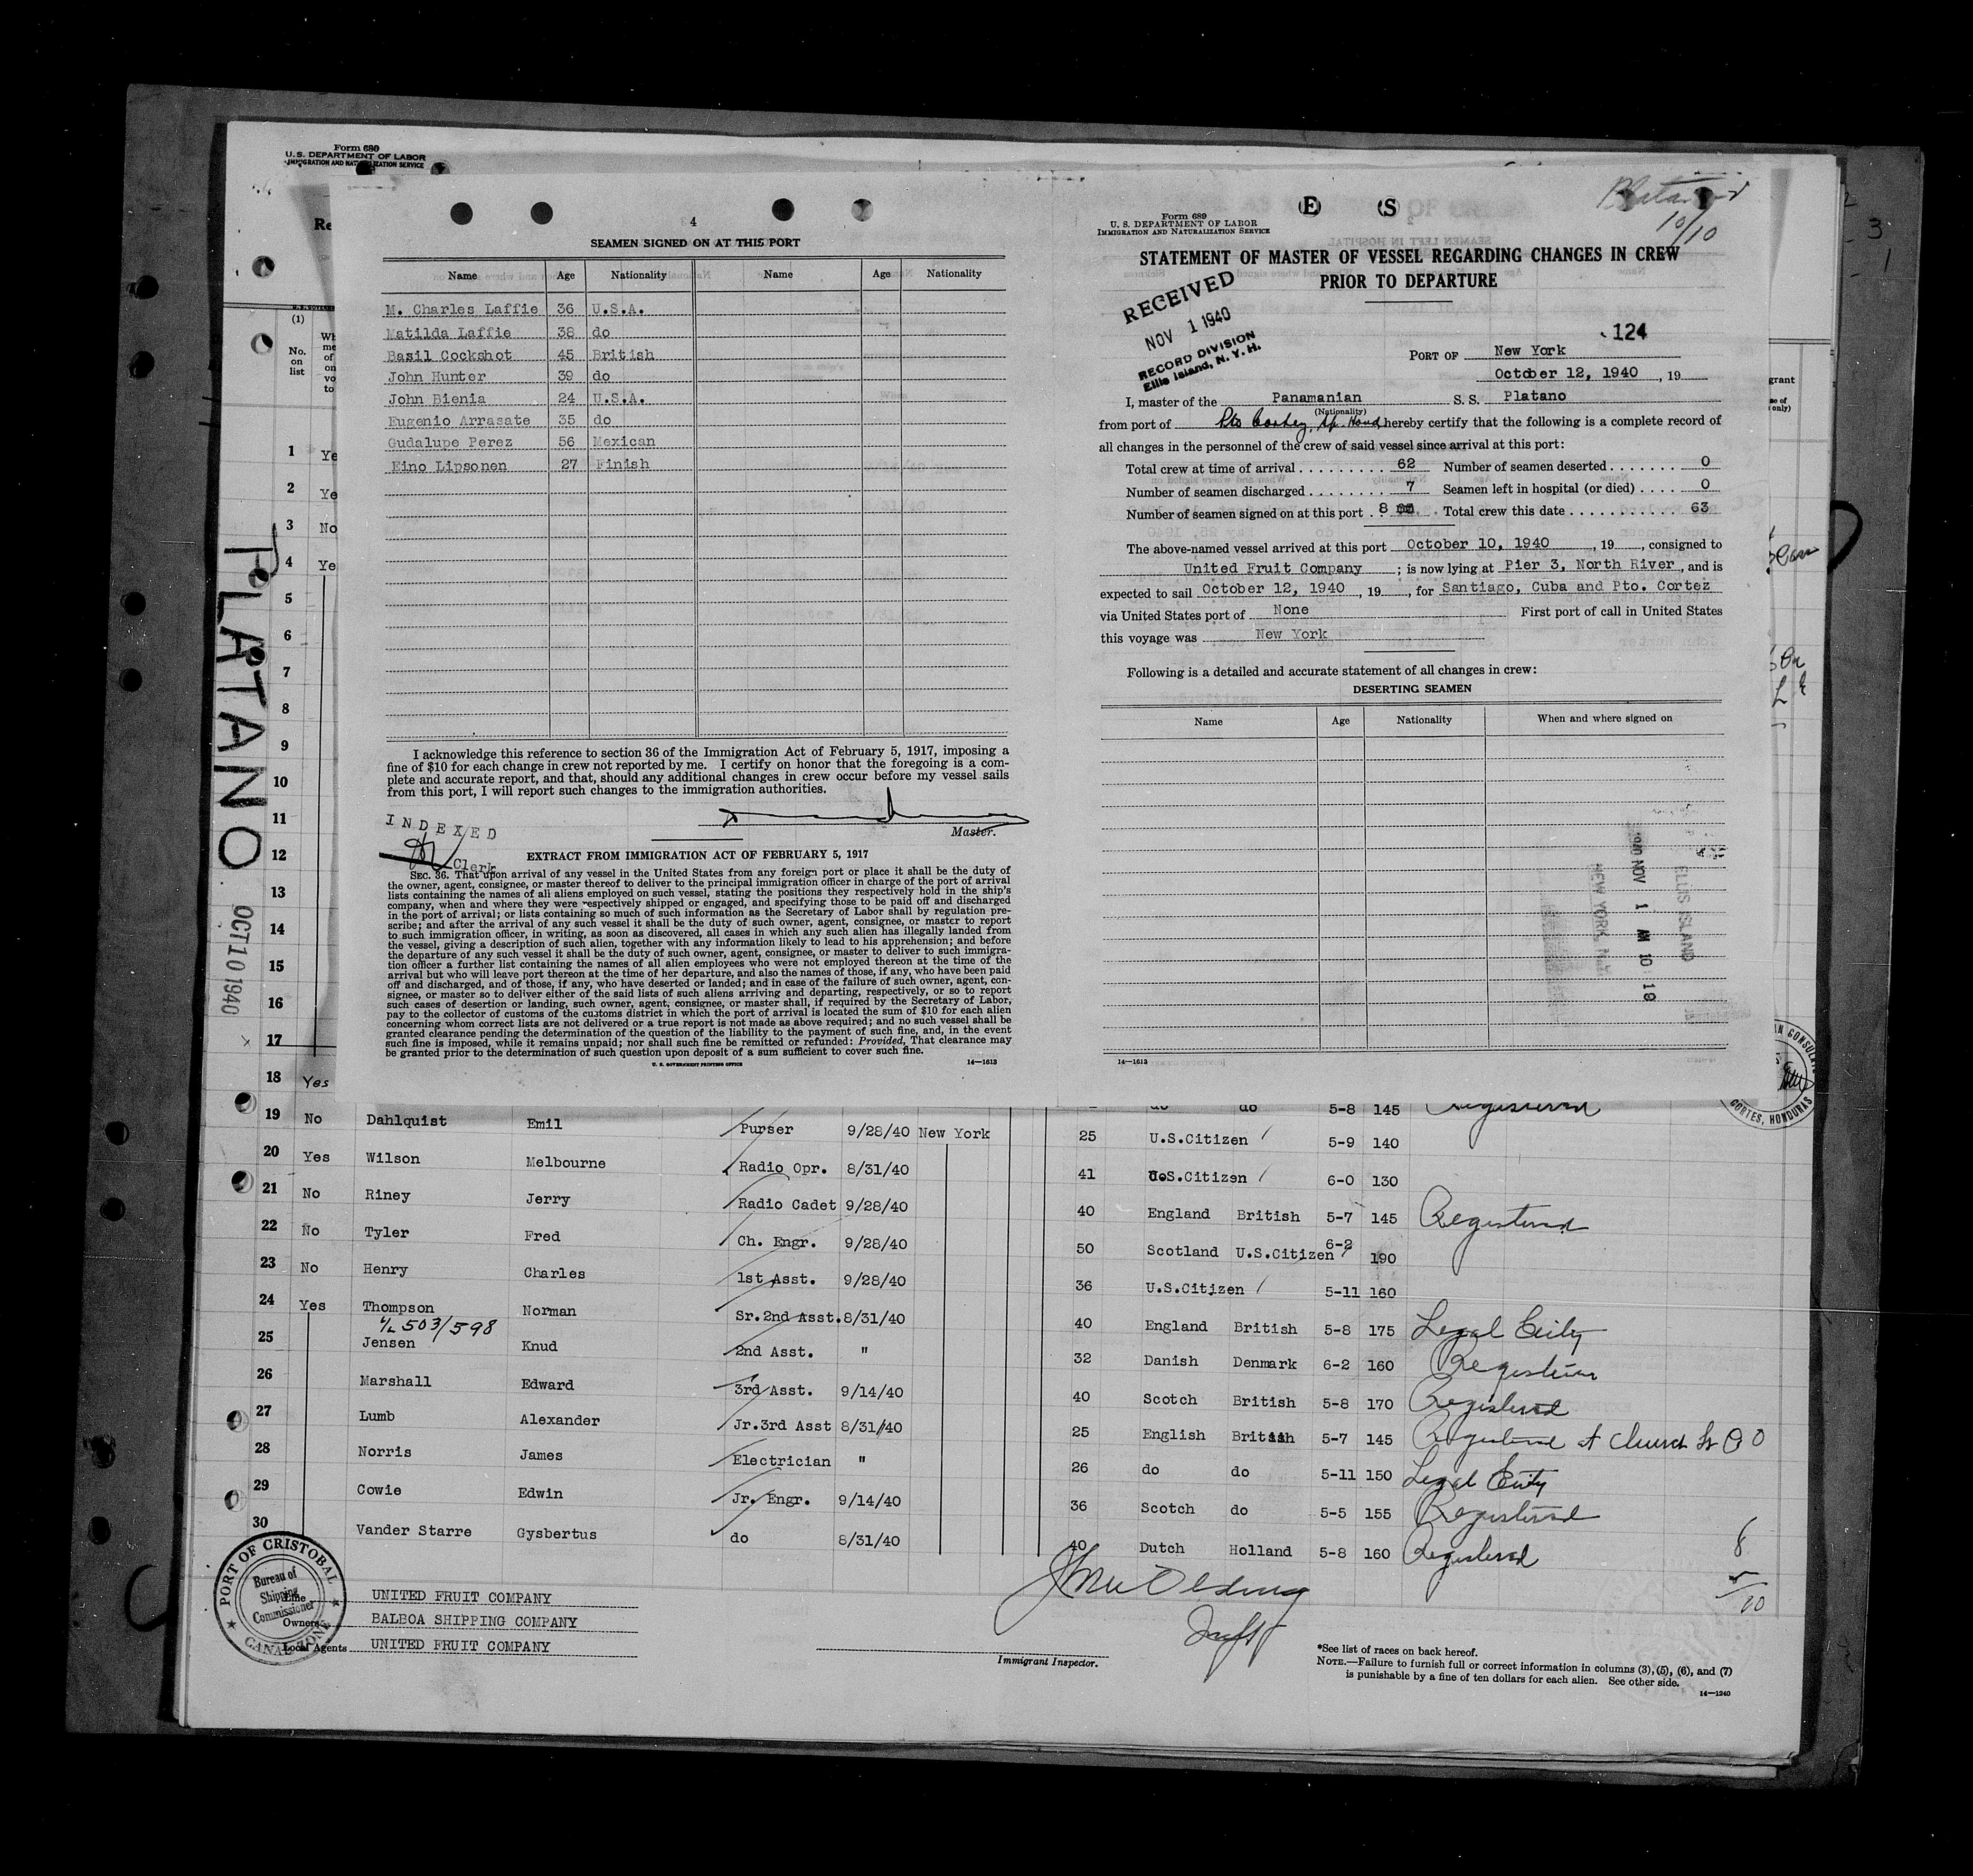 Form 689
U.S. DEPARTMENT OF LABOR
IMMIGRATION AND NATURALIZATION SERVICE
Re
4
SEAMEN SIGNED ON AT THIS PORT
Name Age Nationality Name Age Nationality
M. Charles Laffie 36 U.S.A.
Matilda Laffie 38 do
Basil Cockshot 45 British
John Hunter 39 do
John Bienia 24 U.S.A.
Eugenio Arrasate 35 do
Gudalupe Perez 56 Mexican
Eino Lipsonen 27 Finish
I acknowledge this reference to section 36 of the Immigration Act of February 5, 1917, imposing a
fine of $10 for each change in crew not reported by me. I certify on honor that the foregoing is a com-
plete and accurate report, and that, should any additional changes in crew occur before my vessel sails
from this port, I will report such changes to the immigration authorities.
Master.
INDEXED
Clerk
EXTRACT FROM IMMIGRATION ACT OF FEBRUARY 5, 1917
SEC. 36. That upon arrival of any vessel in the United States from any foreign port or place it shall be the duty of
the owner, agent, consignee, or master thereof to deliver to the principal immigration officer in charge of the port of arrival
lists containing the names of all aliens employed on such vessel, stating the positions they respectively hold in the ship's
company, when and where they were respectively shipped or engaged, and specifying those to be paid off and discharged
in the port of arrival; or lists containing so much of such information as the Secretary of Labor shall by regulation pre-
scribe; and after the arrival of any such vessel it shall be the duty of such owner, agent, consignee, or master to report
to such immigration officer, in writing, as soon as discovered, all cases in which any such alien has illegally landed from
the vessel, giving a description of such alien, together with any information likely to lead to his apprehension; and before
the departure of any such vessel it shall be the duty of such owner, agent, consignee, or master to deliver to such immigra-
tion officer a further list containing the names of all alien employees who were not employed thereon at the time of the
arrival but who will leave port thereon at the time of her departure, and also the names of those, if any, who have been paid
off and discharged, and of those, if any, who have deserted or landed; and in case of the failure of such owner, agent, con-
signee, or master so to deliver either of the said lists of such aliens arriving and departing, respectively, or so to report
such cases of desertion or landing, such owner, agent, consignee, or master shall, if required by the Secretary of Labor,
pay to the collector of customs of the customs district in which the port of arrival is located the sum of $10 for each alien
concerning whom correct lists are not delivered or a true report is not made as above required; and no such vessel shall be
granted clearance pending the determination of the question of the liability to the payment of such fine, and, in the event
such fine is imposed, while it remains unpaid; nor shall such fine be remitted or refunded: Provided, That clearance may
be granted prior to the determination of such question upon deposit of a sum sufficient to cover such fine.
U. S. GOVERNMENT PRINTING OFFICE 14—1613
E S
Platano
10/10
Form 689
U. S. DEPARTMENT OF LABOR
IMMIGRATION AND NATURALIZATION SERVICE
STATEMENT OF MASTER OF VESSEL REGARDING CHANGES IN CREW
PRIOR TO DEPARTURE
RECEIVED
NOV 1 1940
RECORD DIVISION
Ellis Island, N. Y. H.
124
PORT OF New York
October 12, 1940, 19
I, master of the Panamanian S. S. Platano
(Nationality)
from port of Pto Cortez, Sp. Hond hereby certify that the following is a complete record of
all changes in the personnel of the crew of said vessel since arrival at this port:
Total crew at time of arrival 62 Number of seamen deserted 0
Number of seamen discharged 7 Seamen left in hospital (or died) 0
Number of seamen signed on at this port 8 Total crew this date 63
The above-named vessel arrived at this port October 10, 1940, 19, consigned to
United Fruit Company; is now lying at Pier 3, North River, and is
expected to sail October 12, 1940, 19, for Santiago, Cuba and Pto. Cortez
via United States port of None First port of call in United States
this voyage was New York
Following is a detailed and accurate statement of all changes in crew:
DESERTING SEAMEN
Name Age Nationality When and where signed on
1940 NOV 1 AM 10 19
ELLIS ISLAND
NEW YORK, N.Y.
14—1613
PLATANO
OCT 10 1940
(1)
No.
on
list
1 Ye
2 Ye
3 No
4 Ye
5
6
7
8
9
10
11
12
13
14
15
16
17
18 Yes do do 5-8 145 Registered
19 No Dahlquist Emil Purser 9/28/40 New York 25 U.S.Citizen 5-9 140
20 Yes Wilson Melbourne Radio Opr. 8/31/40 41 U.S.Citizen 6-0 130
21 No Riney Jerry Radio Cadet 9/28/40 40 England British 5-7 145 Registered
22 No Tyler Fred Ch. Engr. 9/28/40 50 Scotland U.S.Citizen 6-2 190
23 No Henry Charles 1st Asst. 9/28/40 36 U.S.Citizen 5-11 160
24 Yes Thompson Norman Sr.2nd Asst. 8/31/40 40 England British 5-8 175 Legal Entry
503/598
25 Jensen Knud 2nd Asst. " 32 Danish Denmark 6-2 160 Registered
26 Marshall Edward 3rd Asst. 9/14/40 40 Scotch British 5-8 170 Registered
27 Lumb Alexander Jr.3rd Asst 8/31/40 25 English British 5-7 145 Registered at Church St P O
28 Norris James Electrician " 26 do do 5-11 150 Legal Entry
29 Cowie Edwin Jr. Engr. 9/14/40 36 Scotch do 5-5 155 Registered
30 Vander Starre Gysbertus do 8/31/40 40 Dutch Holland 5-8 160 Registered
PORT OF CRISTOBAL
Bureau of
Shipping
Commissioner
CANAL ZONE
Line UNITED FRUIT COMPANY
Owners BALBOA SHIPPING COMPANY
Local Agents UNITED FRUIT COMPANY
Immigrant Inspector.
*See list of races on back hereof.
NOTE.—Failure to furnish full or correct information in columns (3), (5), (6), and (7)
is punishable by a fine of ten dollars for each alien. See other side.
14—1240
CORTES, HONDURAS